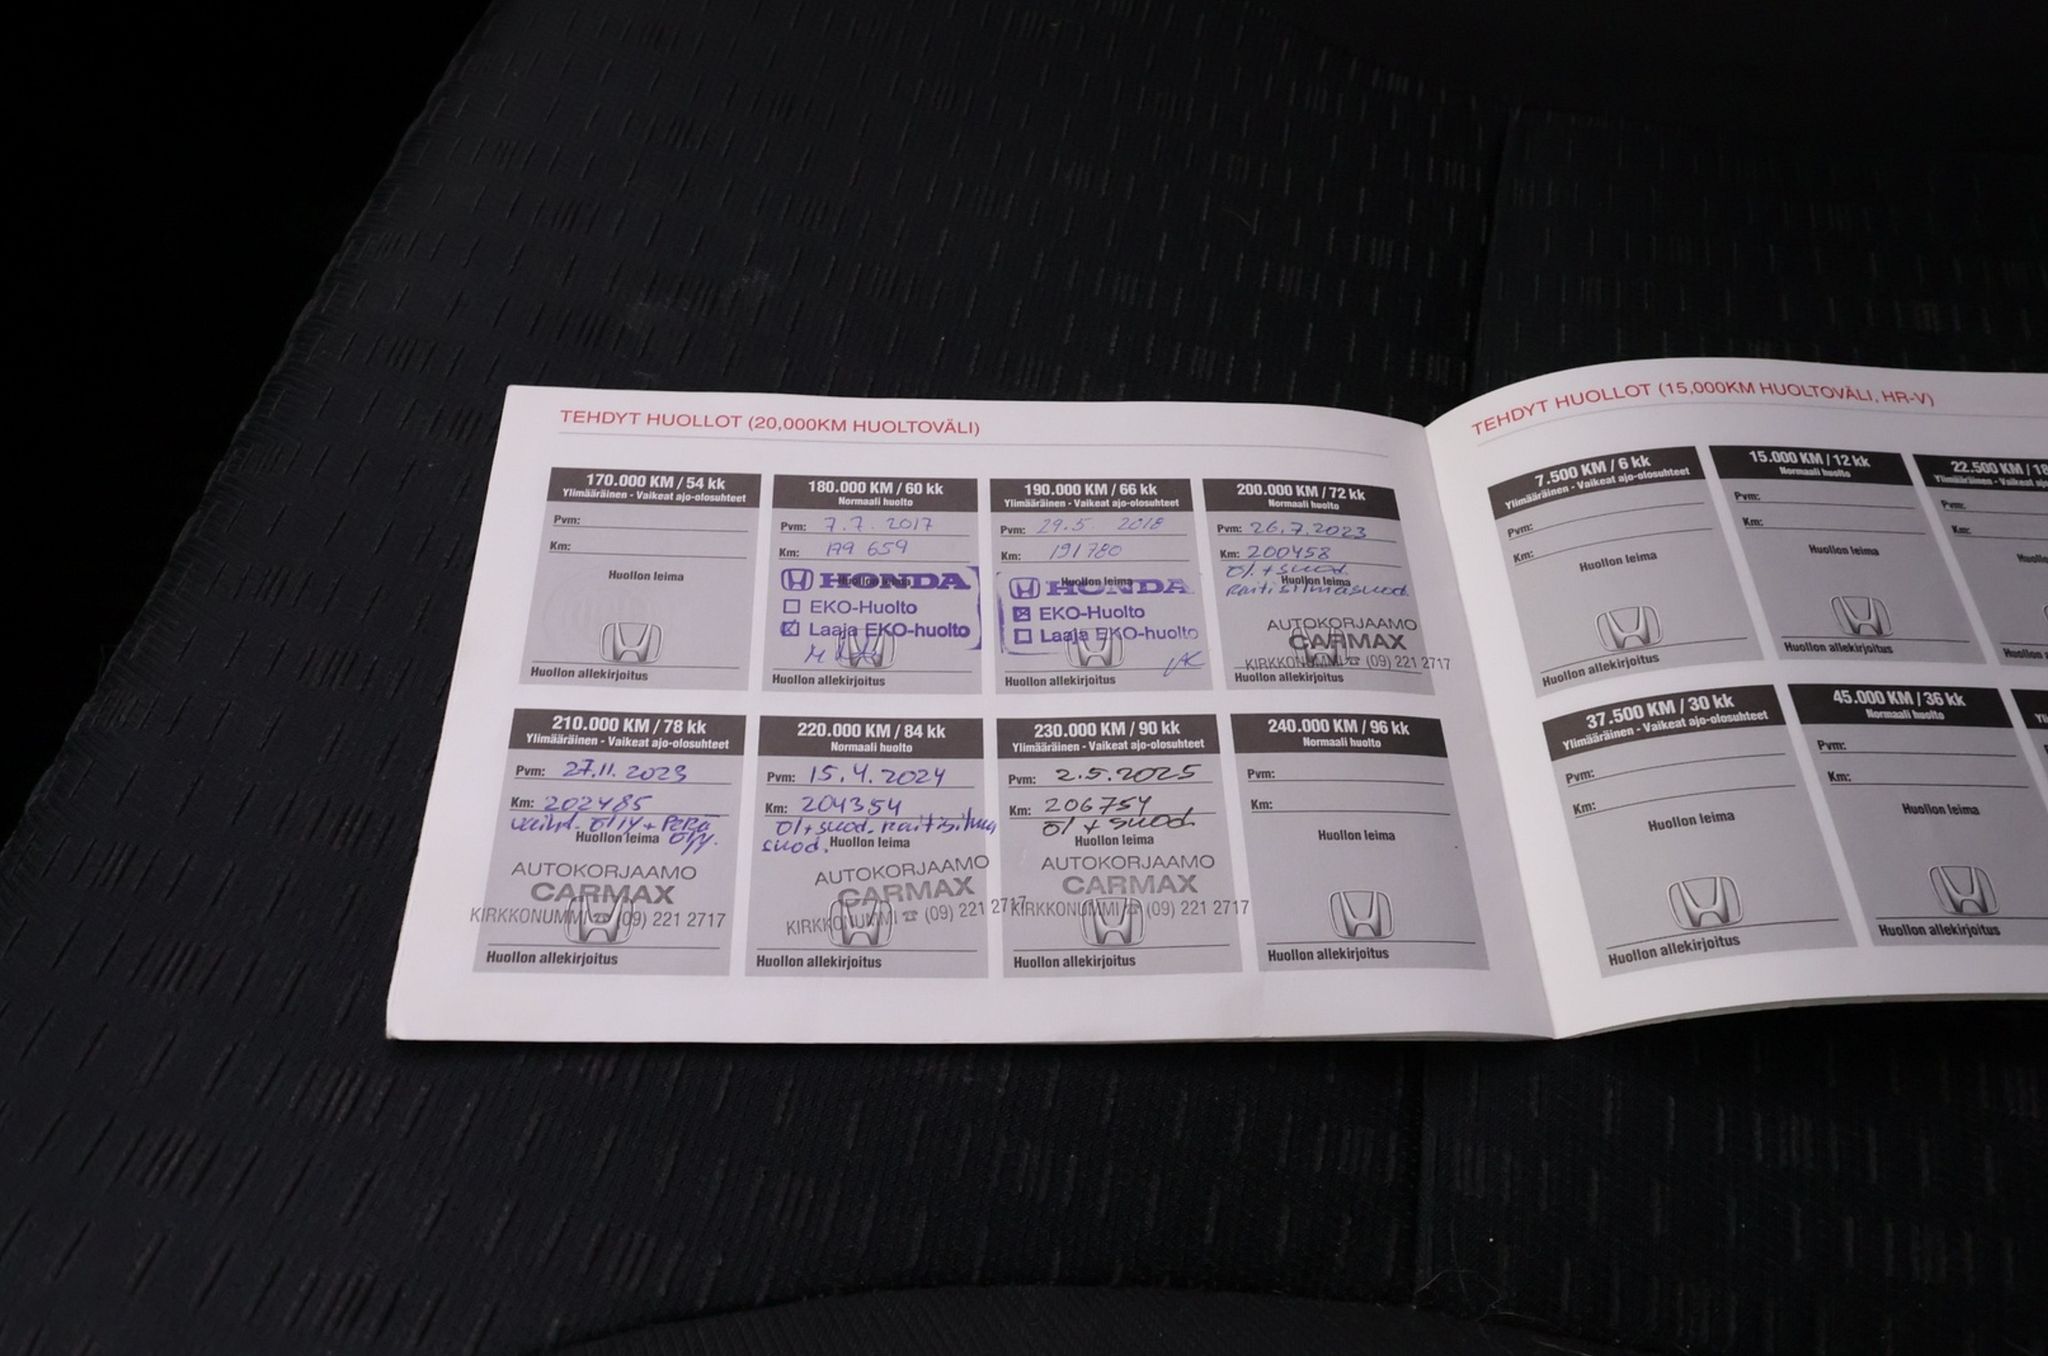 TEHDYT HUOLLOT (20,000KM HUOLTOVÄLI)
170.000 KM / 54 kk
Ylimääräinen - Vaikeat ajo-olosuhteet
Pvm:
Km:
Huollon leima
Huollon allekirjoitus
180.000 KM / 60 kk
Normaali huolto
Pvm: 7.7. 2017
Km: 179 659
Huollon leima
HONDA
EKO-Huolto
Laaja EKO-huolto
Huollon allekirjoitus
190.000 KM / 66 kk
Ylimääräinen - Vaikeat ajo-olosuhteet
Pvm: 29.5. 2018
Km: 191780
Huollon leima
HONDA
EKO-Huolto
Laaja EKO-huolto
Huollon allekirjoitus
200.000 KM / 72 kk
Normaali huolto
Pvm: 26.7.2023
Km: 200458
öl + suod.
Huollon leima
raitisilmasuod.
AUTOKORJAAMO
CARMAX
KIRKKONUMMI ☎ (09) 221 2717
Huollon allekirjoitus
210.000 KM / 78 kk
Ylimääräinen - Vaikeat ajo-olosuhteet
Pvm: 27.11.2023
Km: 202485
vaiht. öljy + perä
Huollon leima öljy.
AUTOKORJAAMO
CARMAX
KIRKKONUMMI ☎ (09) 221 2717
Huollon allekirjoitus
220.000 KM / 84 kk
Normaali huolto
Pvm: 15.4.2024
Km: 204354
öl + suod. raitisilma
suod. Huollon leima
AUTOKORJAAMO
CARMAX
KIRKKONUMMI ☎ (09) 221 2717
Huollon allekirjoitus
230.000 KM / 90 kk
Ylimääräinen - Vaikeat ajo-olosuhteet
Pvm: 2.5.2025
Km: 206754
öl + suod
Huollon leima
AUTOKORJAAMO
CARMAX
KIRKKONUMMI ☎ (09) 221 2717
Huollon allekirjoitus
240.000 KM / 96 kk
Normaali huolto
Pvm:
Km:
Huollon leima
Huollon allekirjoitus
TEHDYT HUOLLOT (15,000KM HUOLTOVÄLI, HR-V)
7.500 KM / 6 kk
Ylimääräinen - Vaikeat ajo-olosuhteet
Pvm:
Km:
Huollon leima
Huollon allekirjoitus
15.000 KM / 12 kk
Normaali huolto
Pvm:
Km:
Huollon leima
Huollon allekirjoitus
22.500 KM / 18
Ylimääräinen - Vaikeat
Pvm:
Km:
37.500 KM / 30 kk
Ylimääräinen - Vaikeat ajo-olosuhteet
Pvm:
Km:
Huollon leima
Huollon allekirjoitus
45.000 KM / 36 kk
Normaali huolto
Pvm:
Km:
Huollon leima
Huollon allekirjoitus